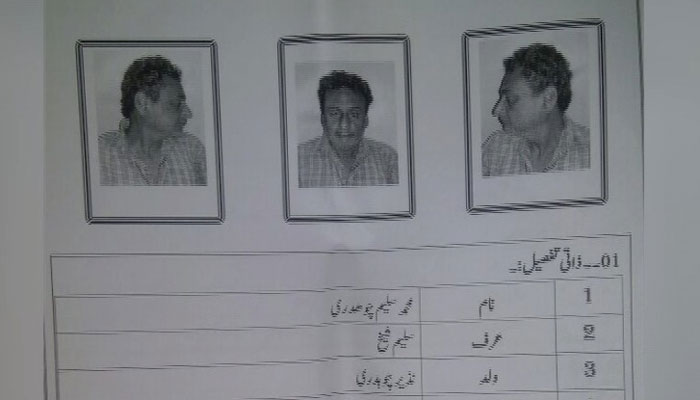 01۔۔ذاتی تفصیل:۔
1 نام محمد سلیم چوھدری
2 عرف سلیم شیخ
3 ولد نذیر چوہدری